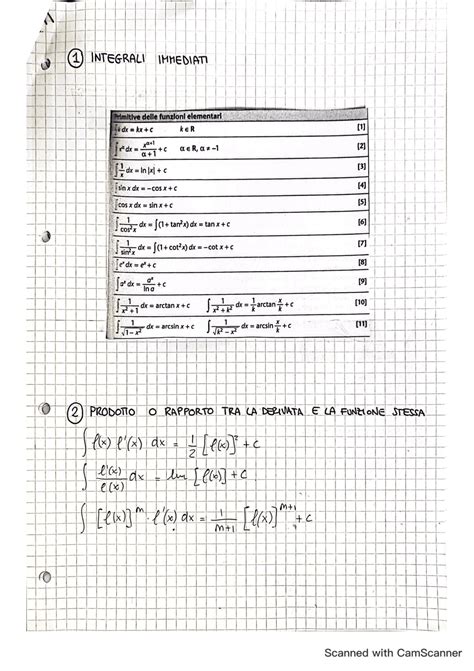 ① INTEGRALI IMMEDIATI
Primitive delle funzioni elementari
∫k dx = kx + c k ∈ R [1]
∫xᵅ dx = xᵅ⁺¹/(α+1) + c α ∈ R, α ≠ −1 [2]
∫1/x dx = ln |x| + c [3]
∫sin x dx = −cos x + c [4]
∫cos x dx = sin x + c [5]
∫1/cos²x dx = ∫(1 + tan²x) dx = tan x + c [6]
∫1/sin²x dx = ∫(1 + cot²x) dx = −cot x + c [7]
∫eˣ dx = eˣ + c [8]
∫aˣ dx = aˣ/ln a + c [9]
∫1/(x² + 1) dx = arctan x + c ∫1/(x² + k²) dx = 1/k arctan x/k + c [10]
∫1/√(1 − x²) dx = arcsin x + c ∫1/√(k² − x²) dx = arcsin x/k + c [11]
② PRODOTTO O RAPPORTO TRA LA DERIVATA E LA FUNZIONE STESSA
∫ f(x) f'(x) dx = 1/2 [f(x)]² + c
∫ f'(x)/f(x) dx = ln [f(x)] + c
∫ [f(x)]ᵐ · f'(x) dx = 1/(m+1) [f(x)]ᵐ⁺¹ + c
Scanned with CamScanner